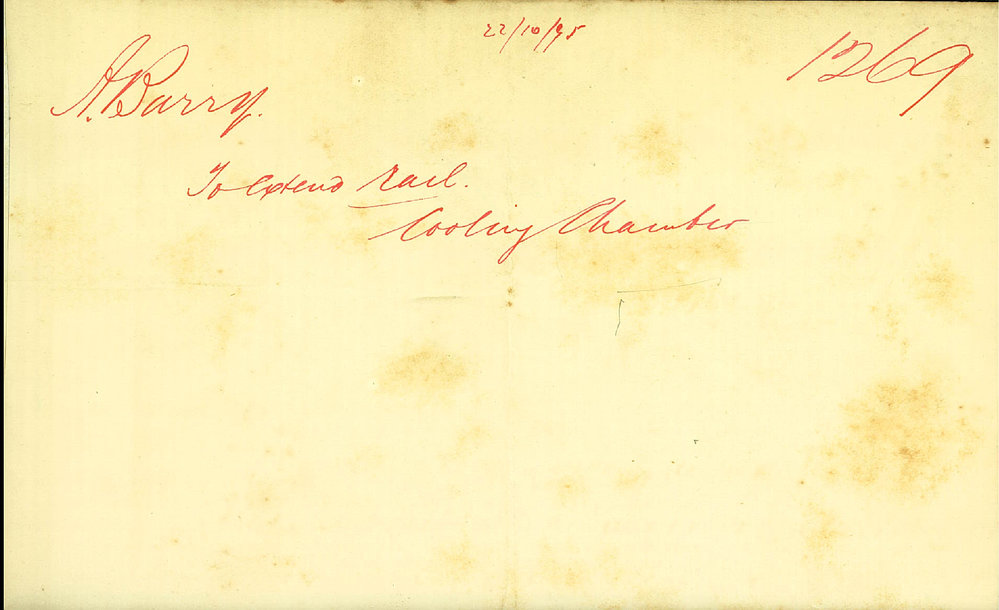 22/10/95
1269
A. Barry.
To extend rail.
Cooling Chamber